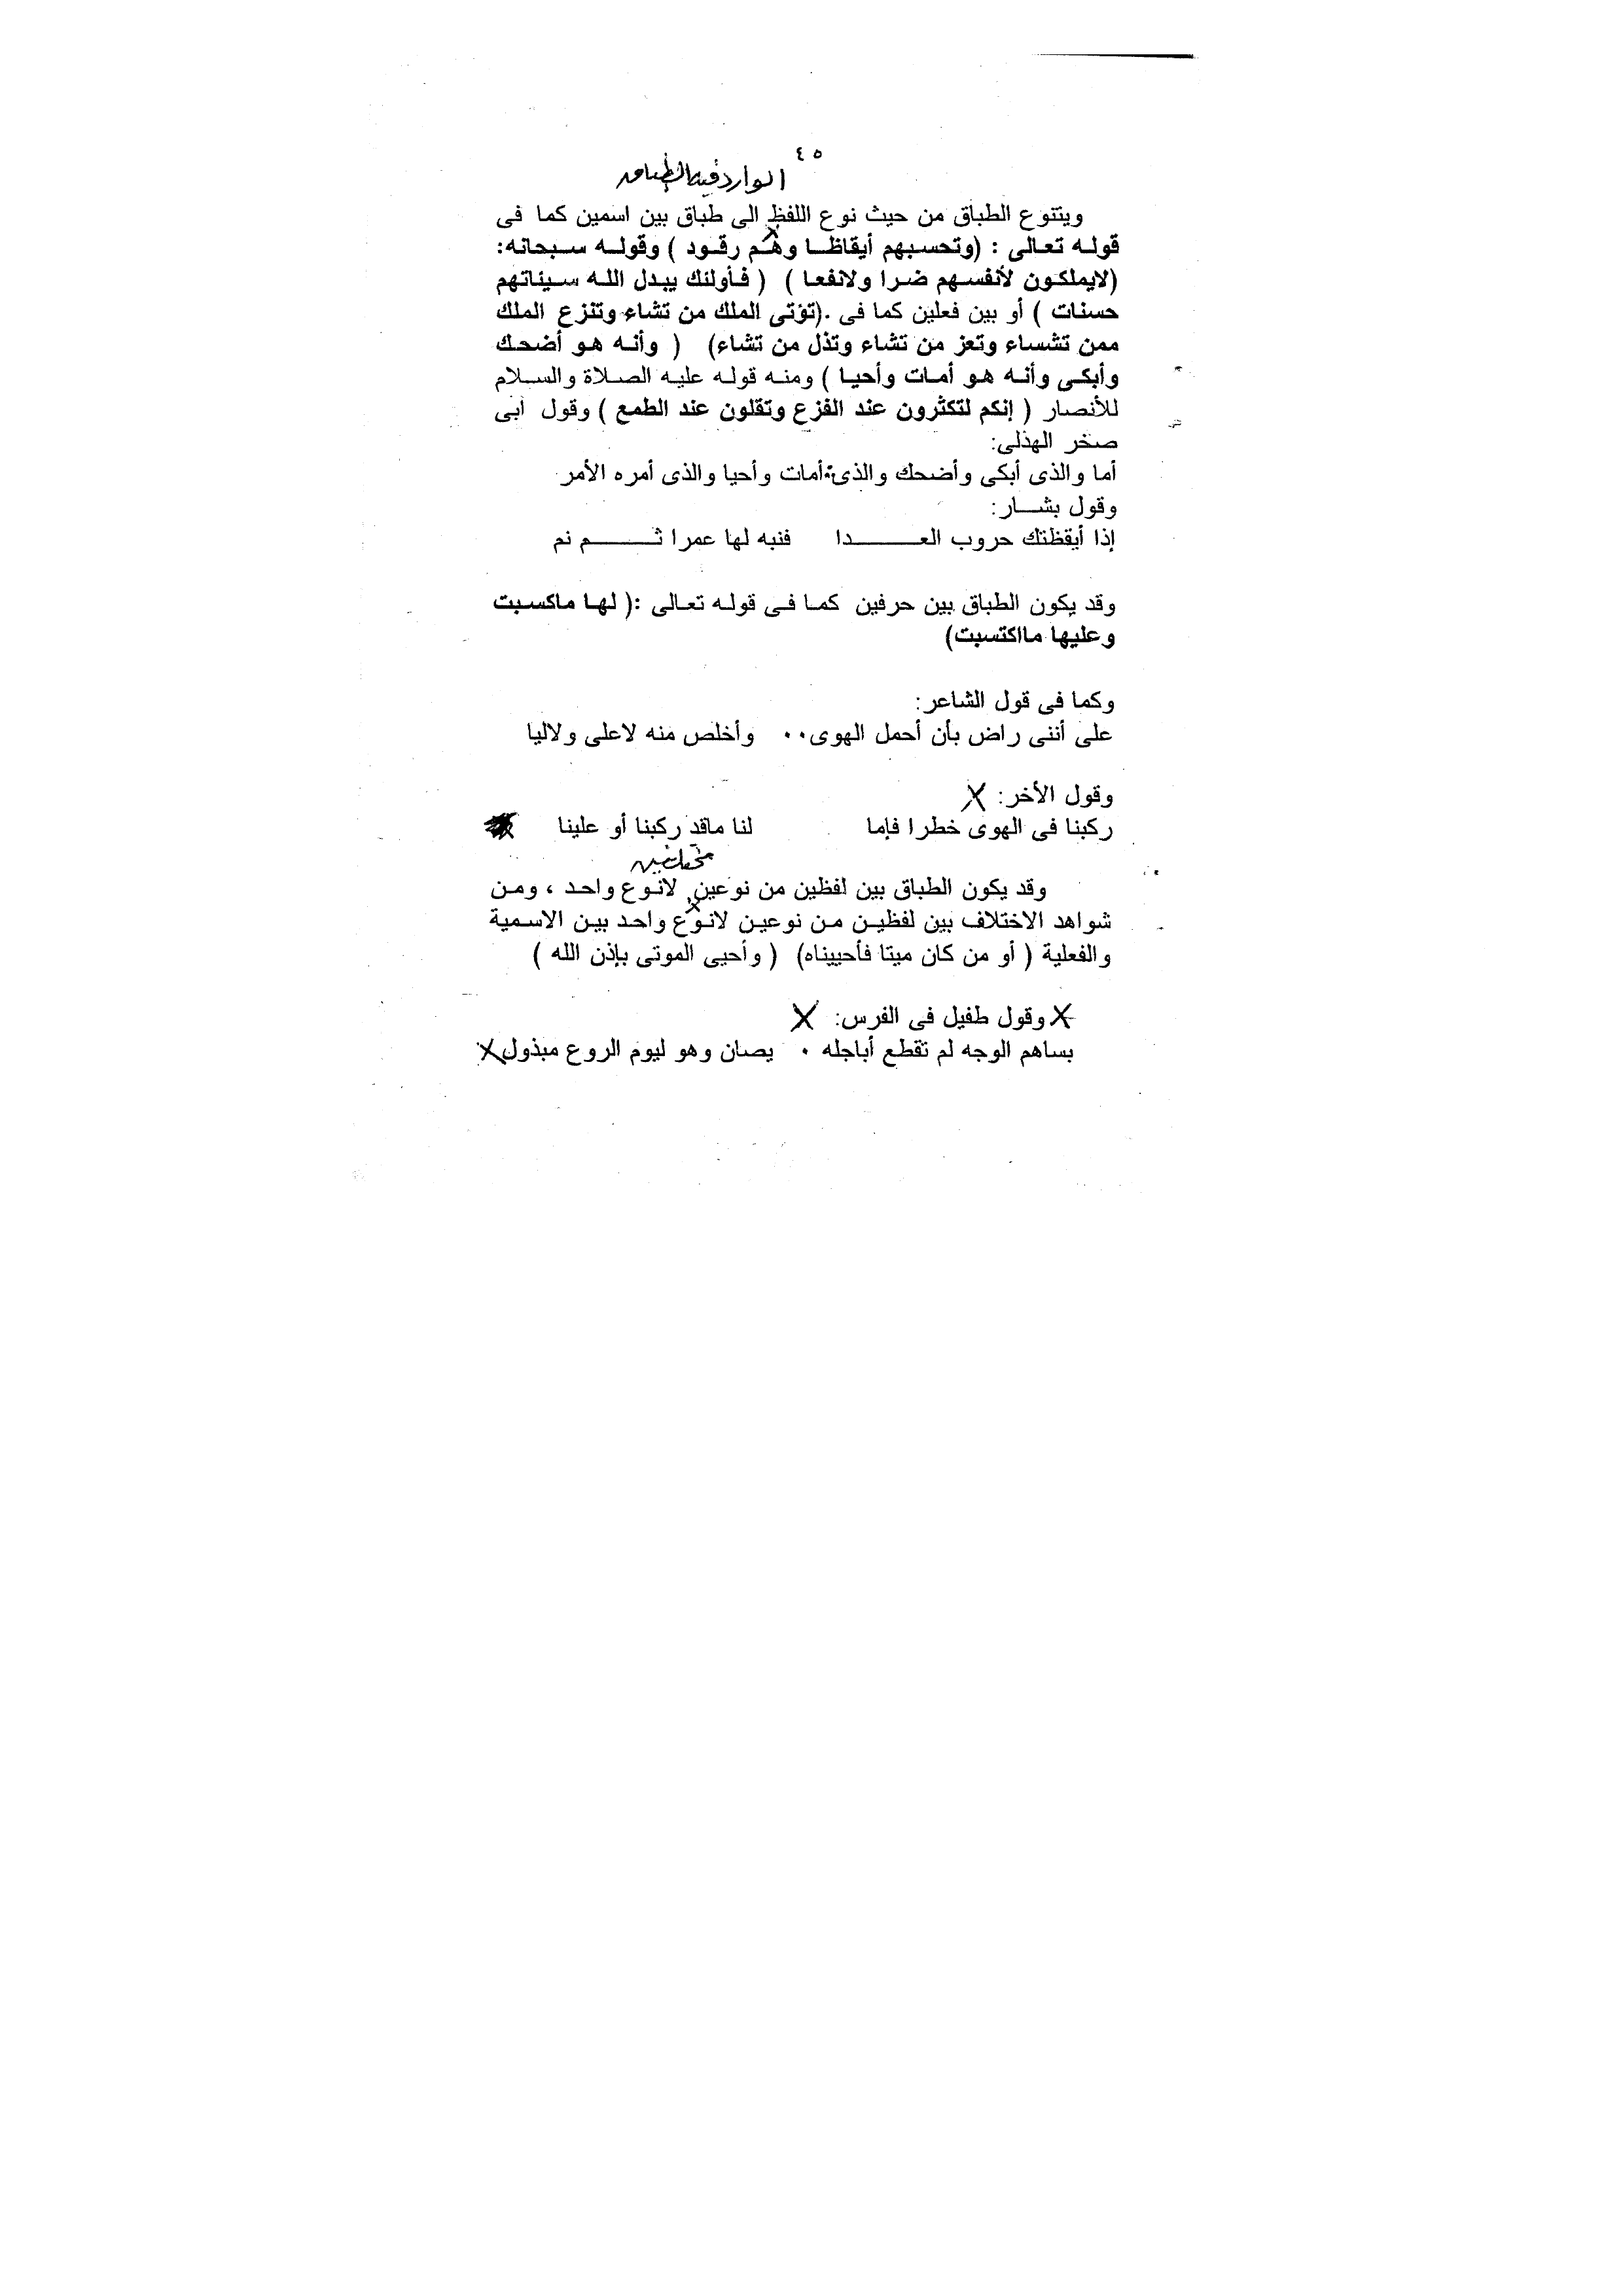 ٤٥
الوارد فيه الطباق
ويتنوع الطباق من حيث نوع اللفظ الى طباق بين اسمين كما فى
قوله تعالى : (وتحسبهم أيقاظا وهم رقود ) وقوله سبحانه:
(لايملكون لأنفسهم ضرا ولانفعا ) ( فأولئك يبدل الله سيئاتهم
حسنات ) أو بين فعلين كما فى .(تؤتى الملك من تشاء وتنزع الملك
ممن تشساء وتعز من تشاء وتذل من تشاء) ( وأنه هو أضحك
وأبكى وأنه هو أمات وأحيا ) ومنه قوله عليه الصلاة والسلام
للأنصار ( إنكم لتكثرون عند الفزع وتقلون عند الطمع ) وقول أبى
صخر الهذلى:
أما والذى أبكى وأضحك والذى أمات وأحيا والذى أمره الأمر
وقول بشــار:
إذا أيقظتك حروب العــــــدا فنبه لها عمرا ثــــــم نم
وقد يكون الطباق بين حرفين كما فى قوله تعالى :( لها ماكسبت
وعليها مااكتسبت)
وكما فى قول الشاعر:
على أننى راض بأن أحمل الهوى٠٠ وأخلص منه لاعلى ولاليا
وقول الأخر: X
ركبنا فى الهوى خطرا فإما لنا ماقد ركبنا أو علينا
مختلفين
وقد يكون الطباق بين لفظين من نوعين لانوع واحد ، ومن
شواهد الاختلاف بين لفظين من نوعين لانوع واحد بين الاسمية
والفعلية ( أو من كان ميتا فأحييناه) ( وأحيى الموتى بإذن الله )
X وقول طفيل فى الفرس: X
بساهم الوجه لم تقطع أباجله ٠ يصان وهو ليوم الروع مبذول X